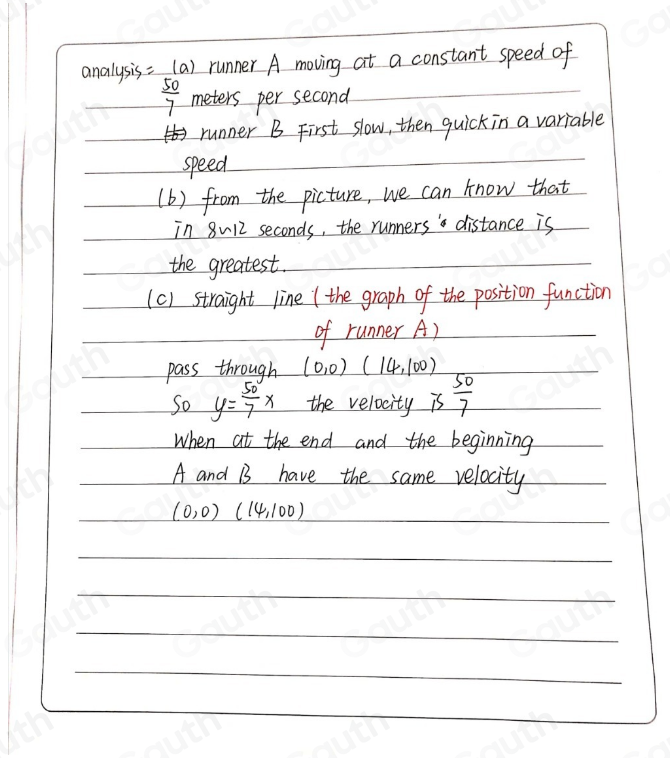 analysis= (a) runner A moving at a constant speed of
50/7 meters per second
runner B First slow, then quick in a variable
speed
(b) from the picture, we can know that
in 8~12 seconds, the runners's distance is
the greatest.
(c) straight line (the graph of the position function
of runner A)
pass through (0,0) (14,100)
So y=50/7 x the velocity is 50/7
When at the end and the beginning
A and B have the same velocity
(0,0) (14,100)